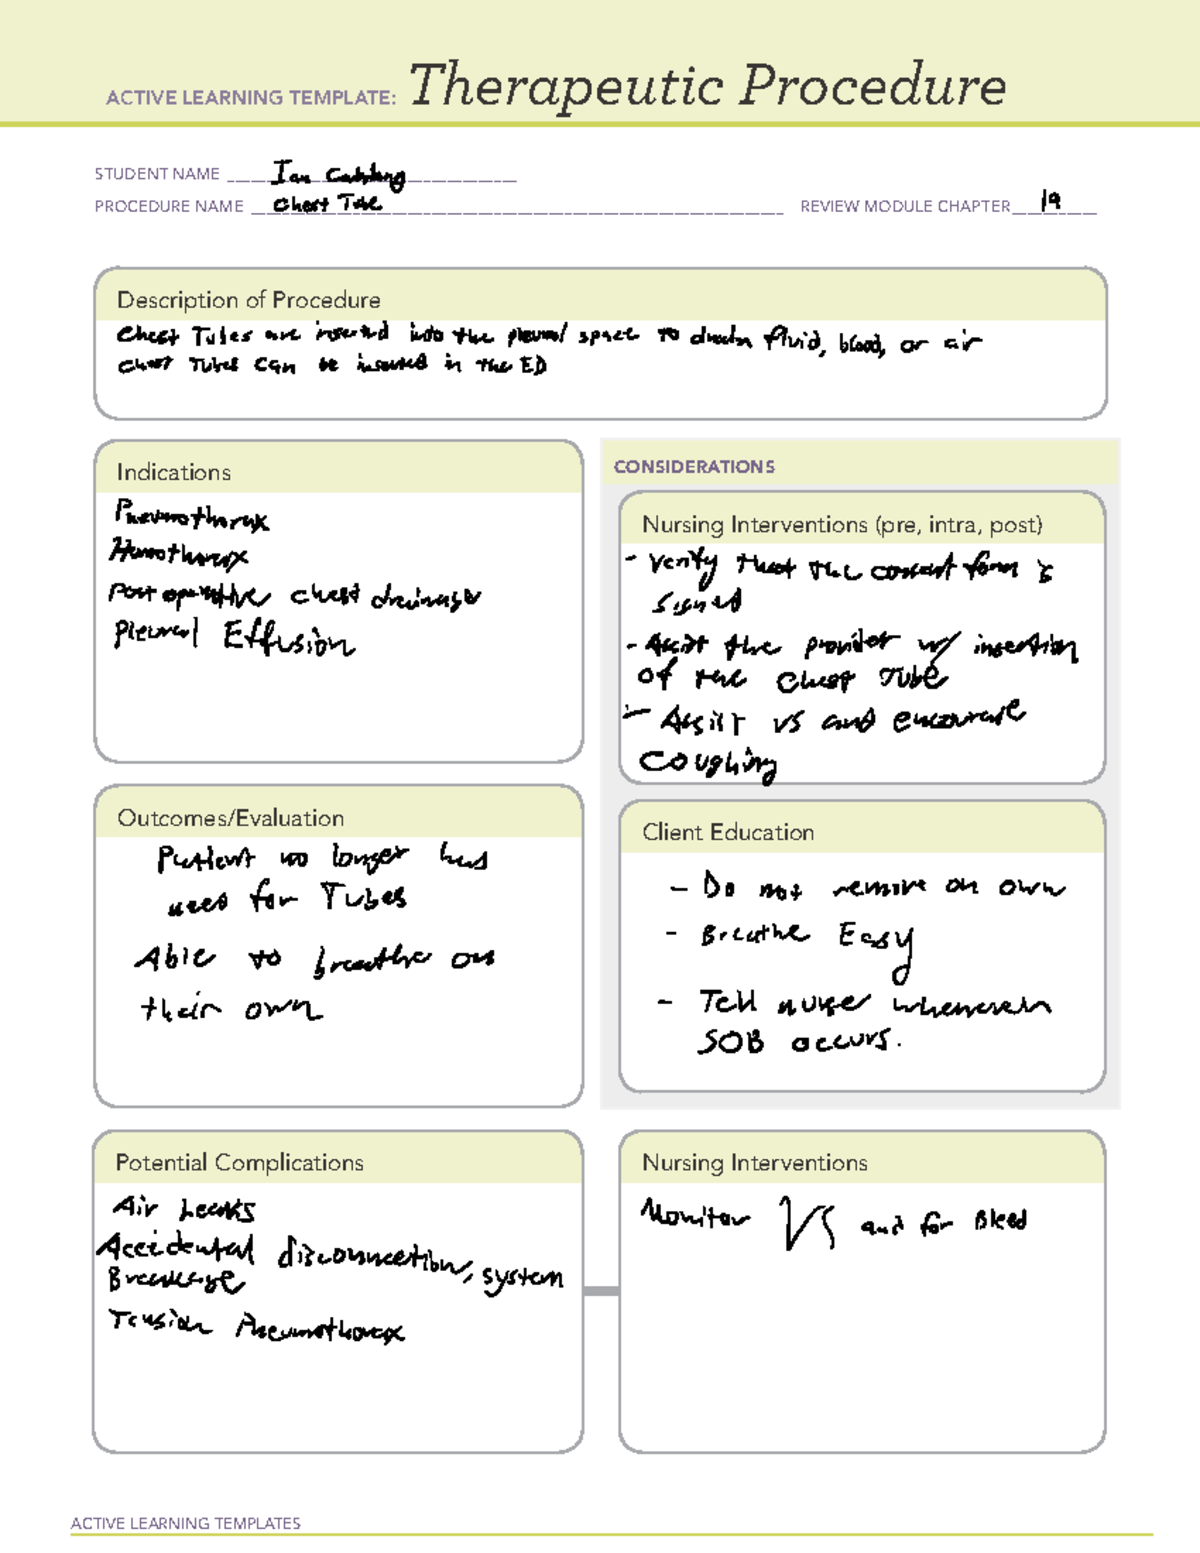 ACTIVE LEARNING TEMPLATE: Therapeutic Procedure
STUDENT NAME Ian
PROCEDURE NAME Chest Tube
REVIEW MODULE CHAPTER 19
Description of Procedure
Chest Tubes are inserted into the pleural space to drain fluid, blood, or air
Chest Tubes can be inserted in the ED
Indications
Pneumothorax
Hemothorax
Postoperative chest drainage
Pleural Effusion
CONSIDERATIONS
Nursing Interventions (pre, intra, post)
- Verify that the consent form is
signed
- Assist the provider w/ insertion
of the chest tube
- Assist VS and encourage
Coughing
Outcomes/Evaluation
Patient no longer has
need for Tubes
Able to breathe on
their own
Client Education
- Do not remove on own
- Breathe Easy
- Tell nurse
SOB occurs.
Potential Complications
Air Leaks
Accidental disconnection, system
Breakage
Tension Pneumothorax
Nursing Interventions
Monitor VS and for Bleed
ACTIVE LEARNING TEMPLATES